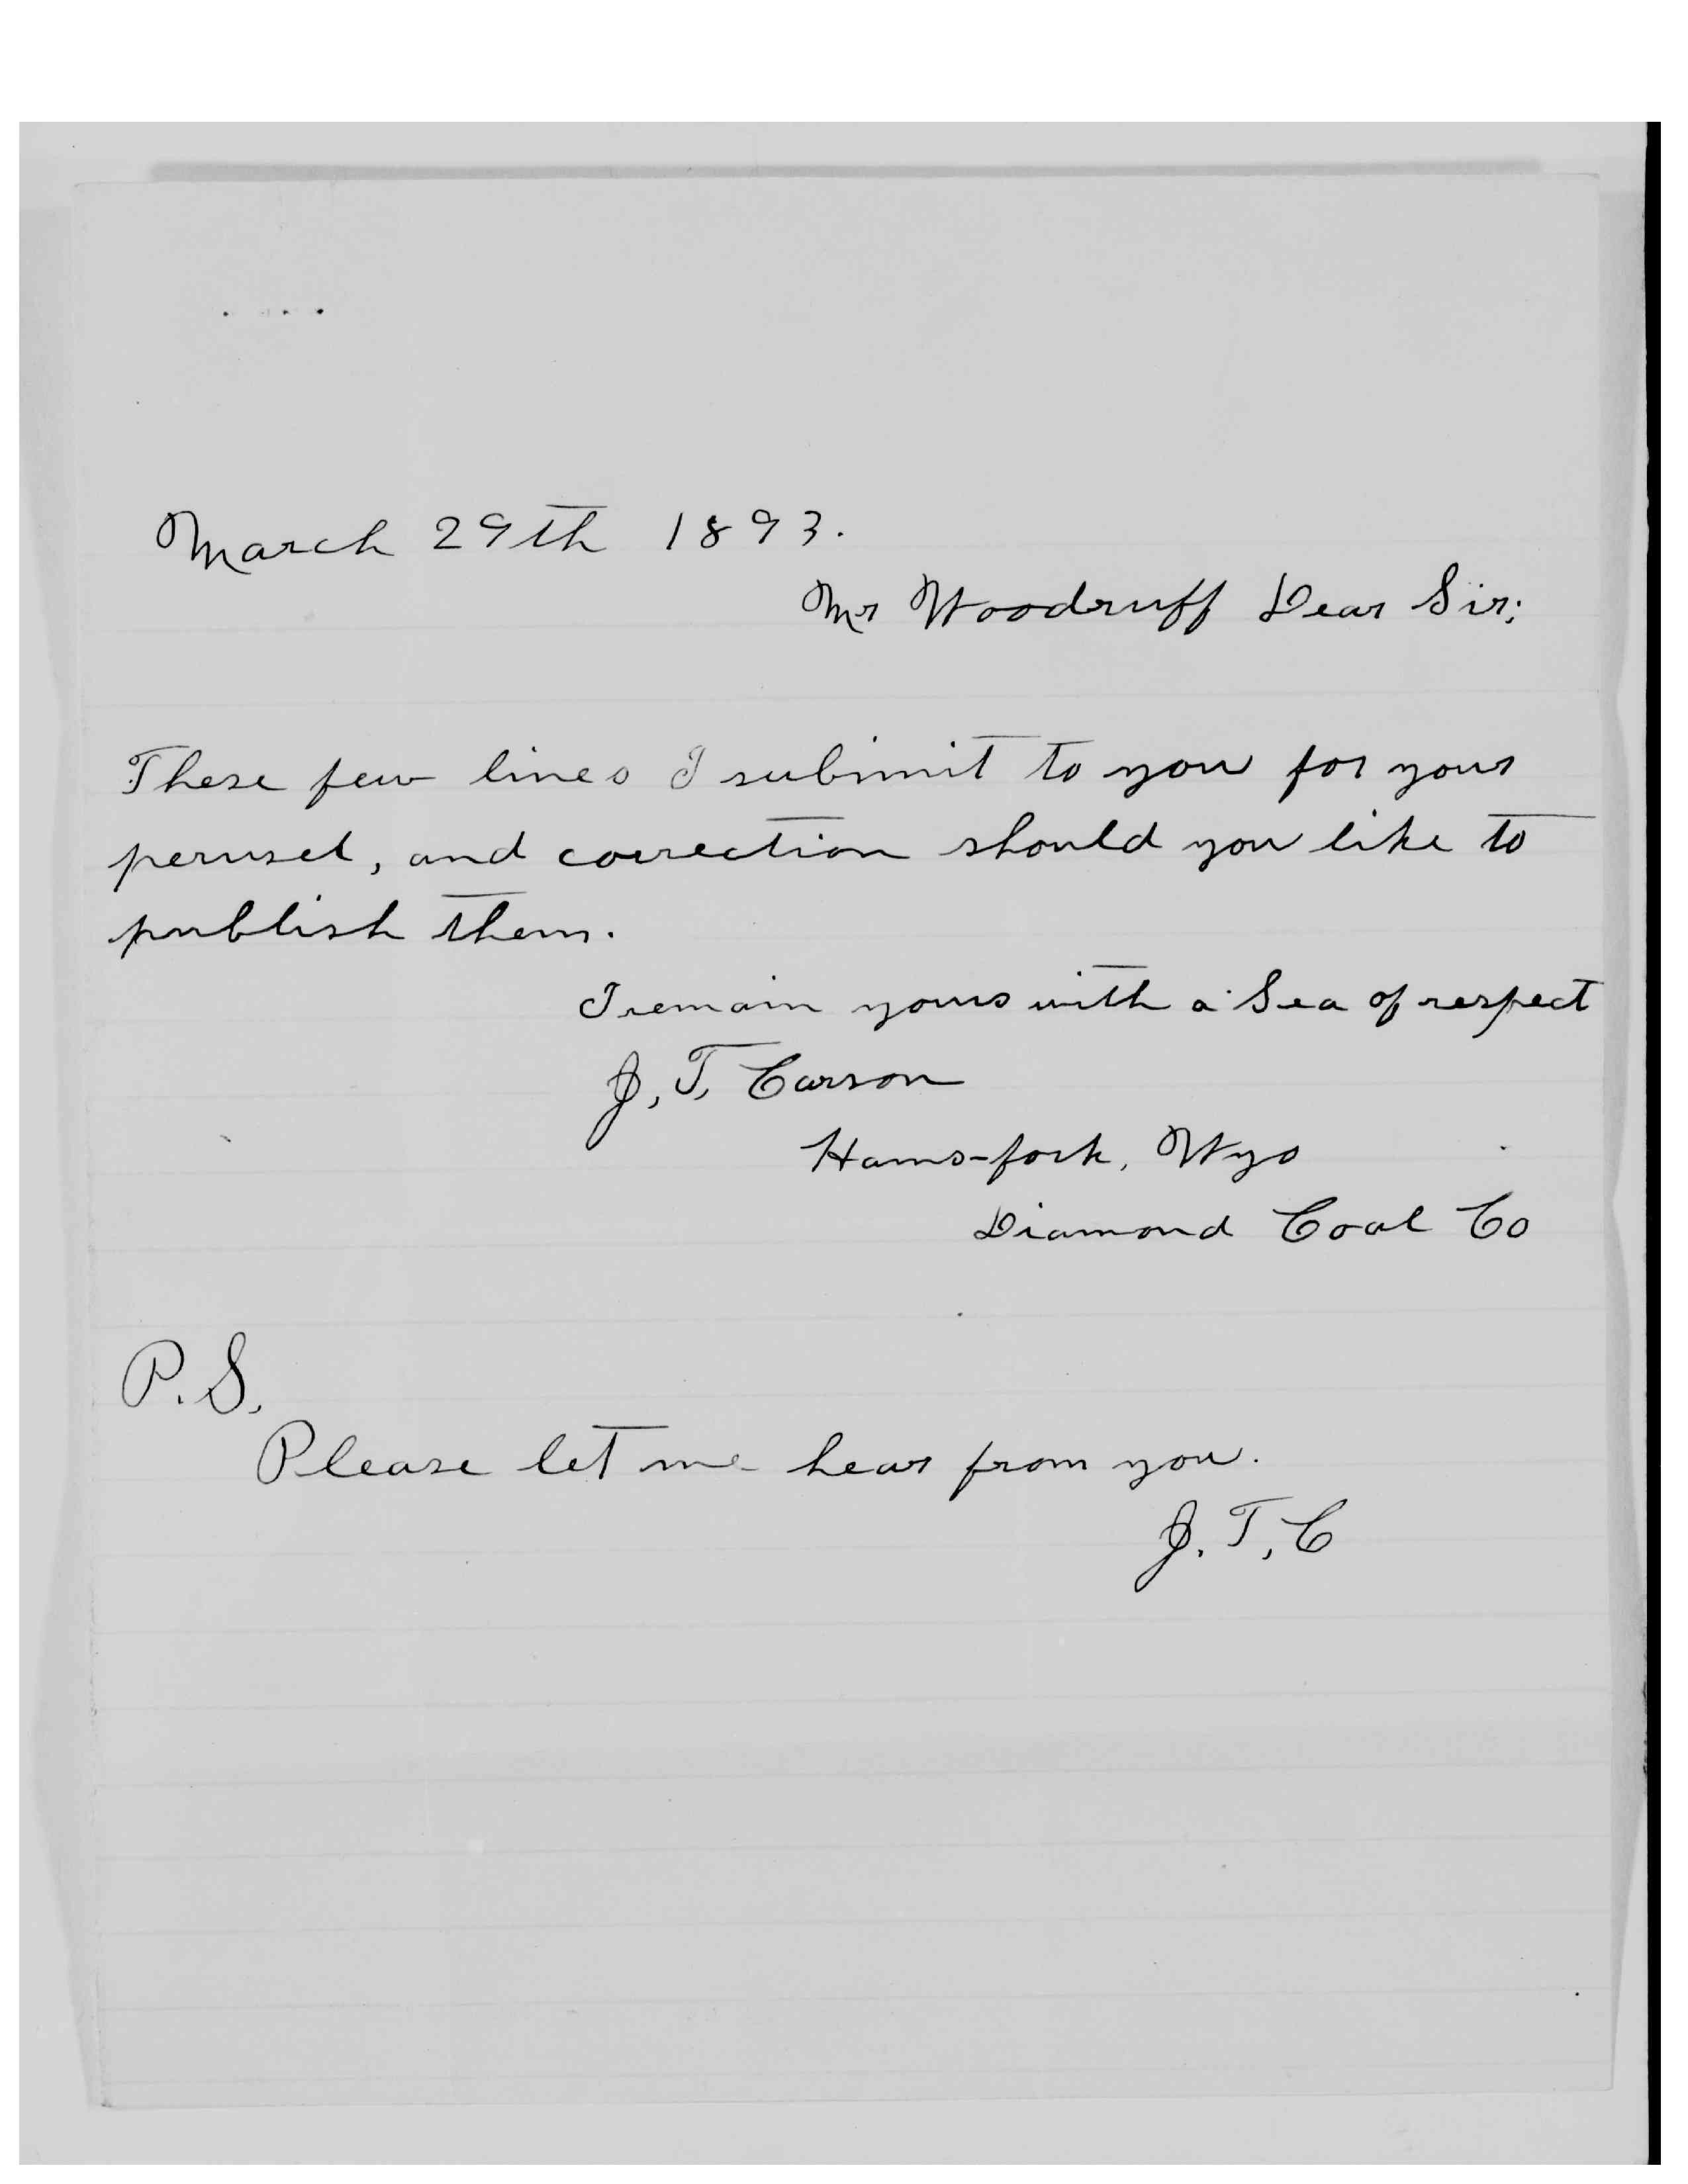 March 29th 1893.
Mr Woodruff Dear Sir;
These few lines I submit to you for your
perusel, and correction should you like to
publish them.
I remain yours with a Sea of respect
J. T. Carson
Hams-fork, Wyo
Diamond Coal Co
P.S.
Please let me hear from you.
J. T. C